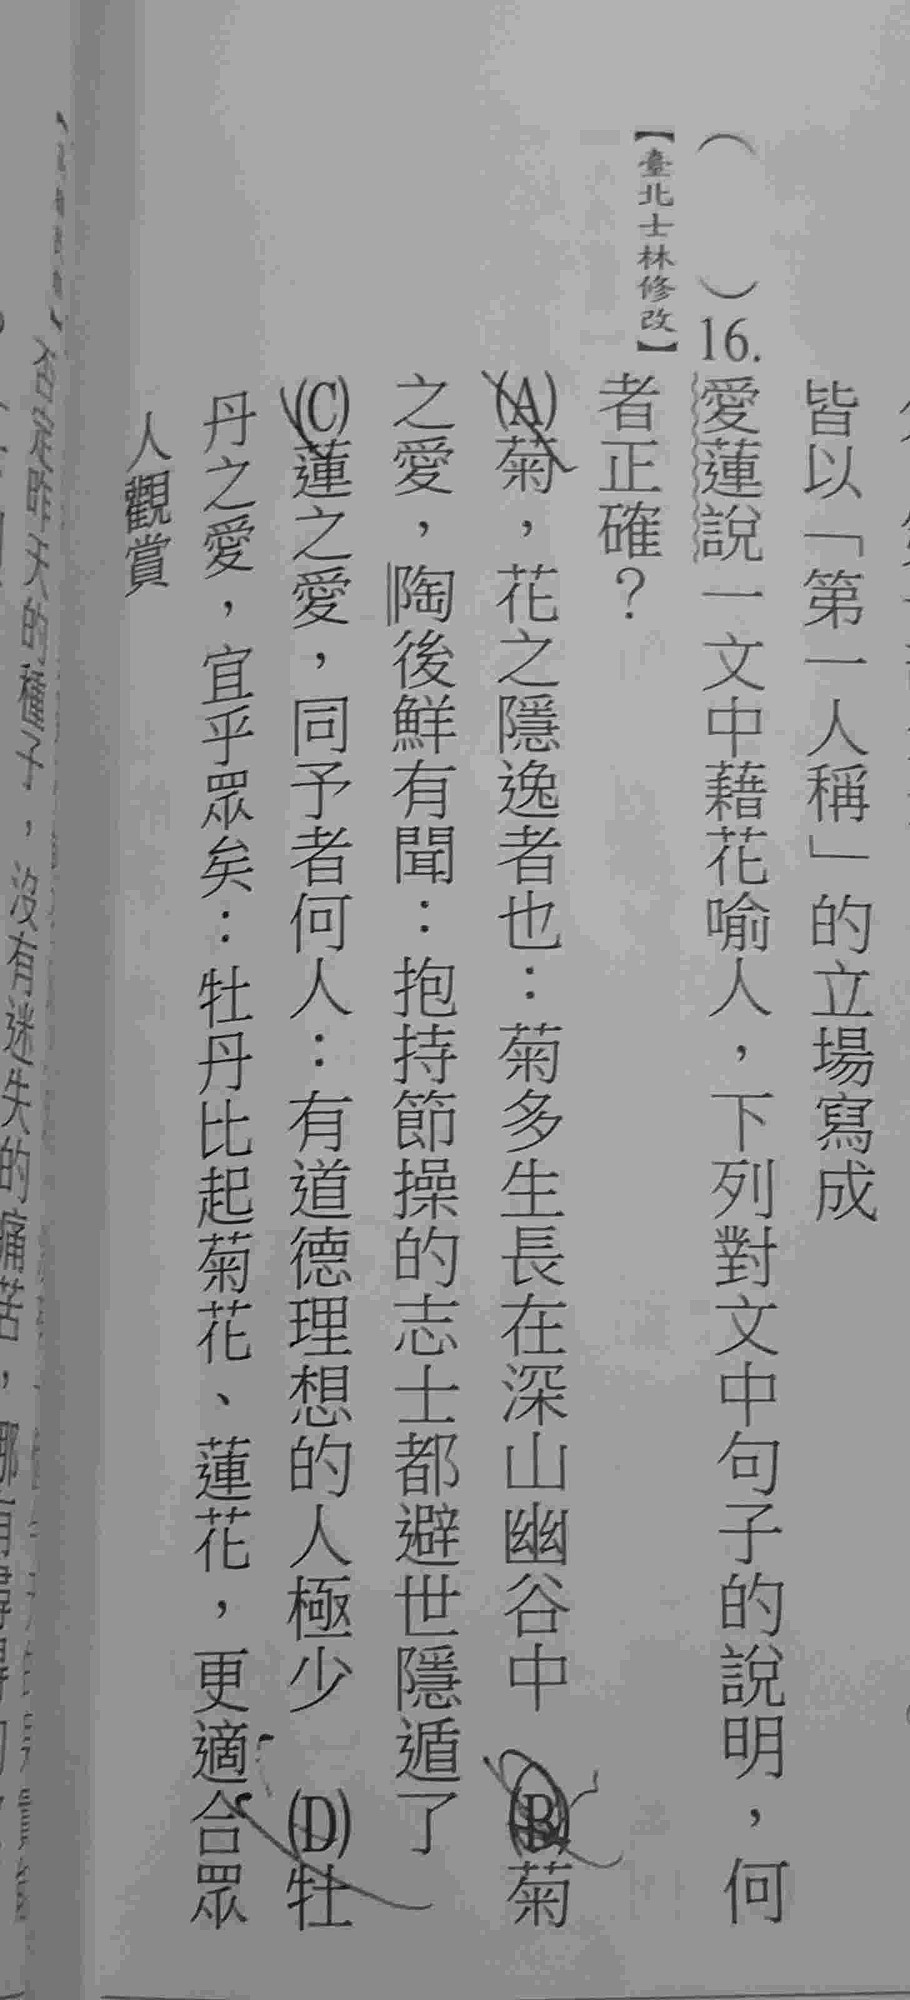 皆以「第一人稱」的立場寫成
（　）16.愛蓮說一文中藉花喻人，下列對文中句子的說明，何
者正確？
【臺北士林修改】
(A)菊，花之隱逸者也：菊多生長在深山幽谷中　(B)菊
之愛，陶後鮮有聞：抱持節操的志士都避世隱遁了
(C)蓮之愛，同予者何人：有道德理想的人極少　(D)牡
丹之愛，宜乎眾矣：牡丹比起菊花、蓮花，更適合眾
人觀賞
否定昨天的種子，沒有迷失的痛苦，哪有